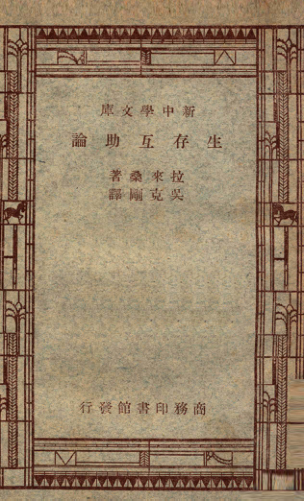 新中學文庫
生存互助論
拉來桑著
吳克剛譯
商務印書館發行